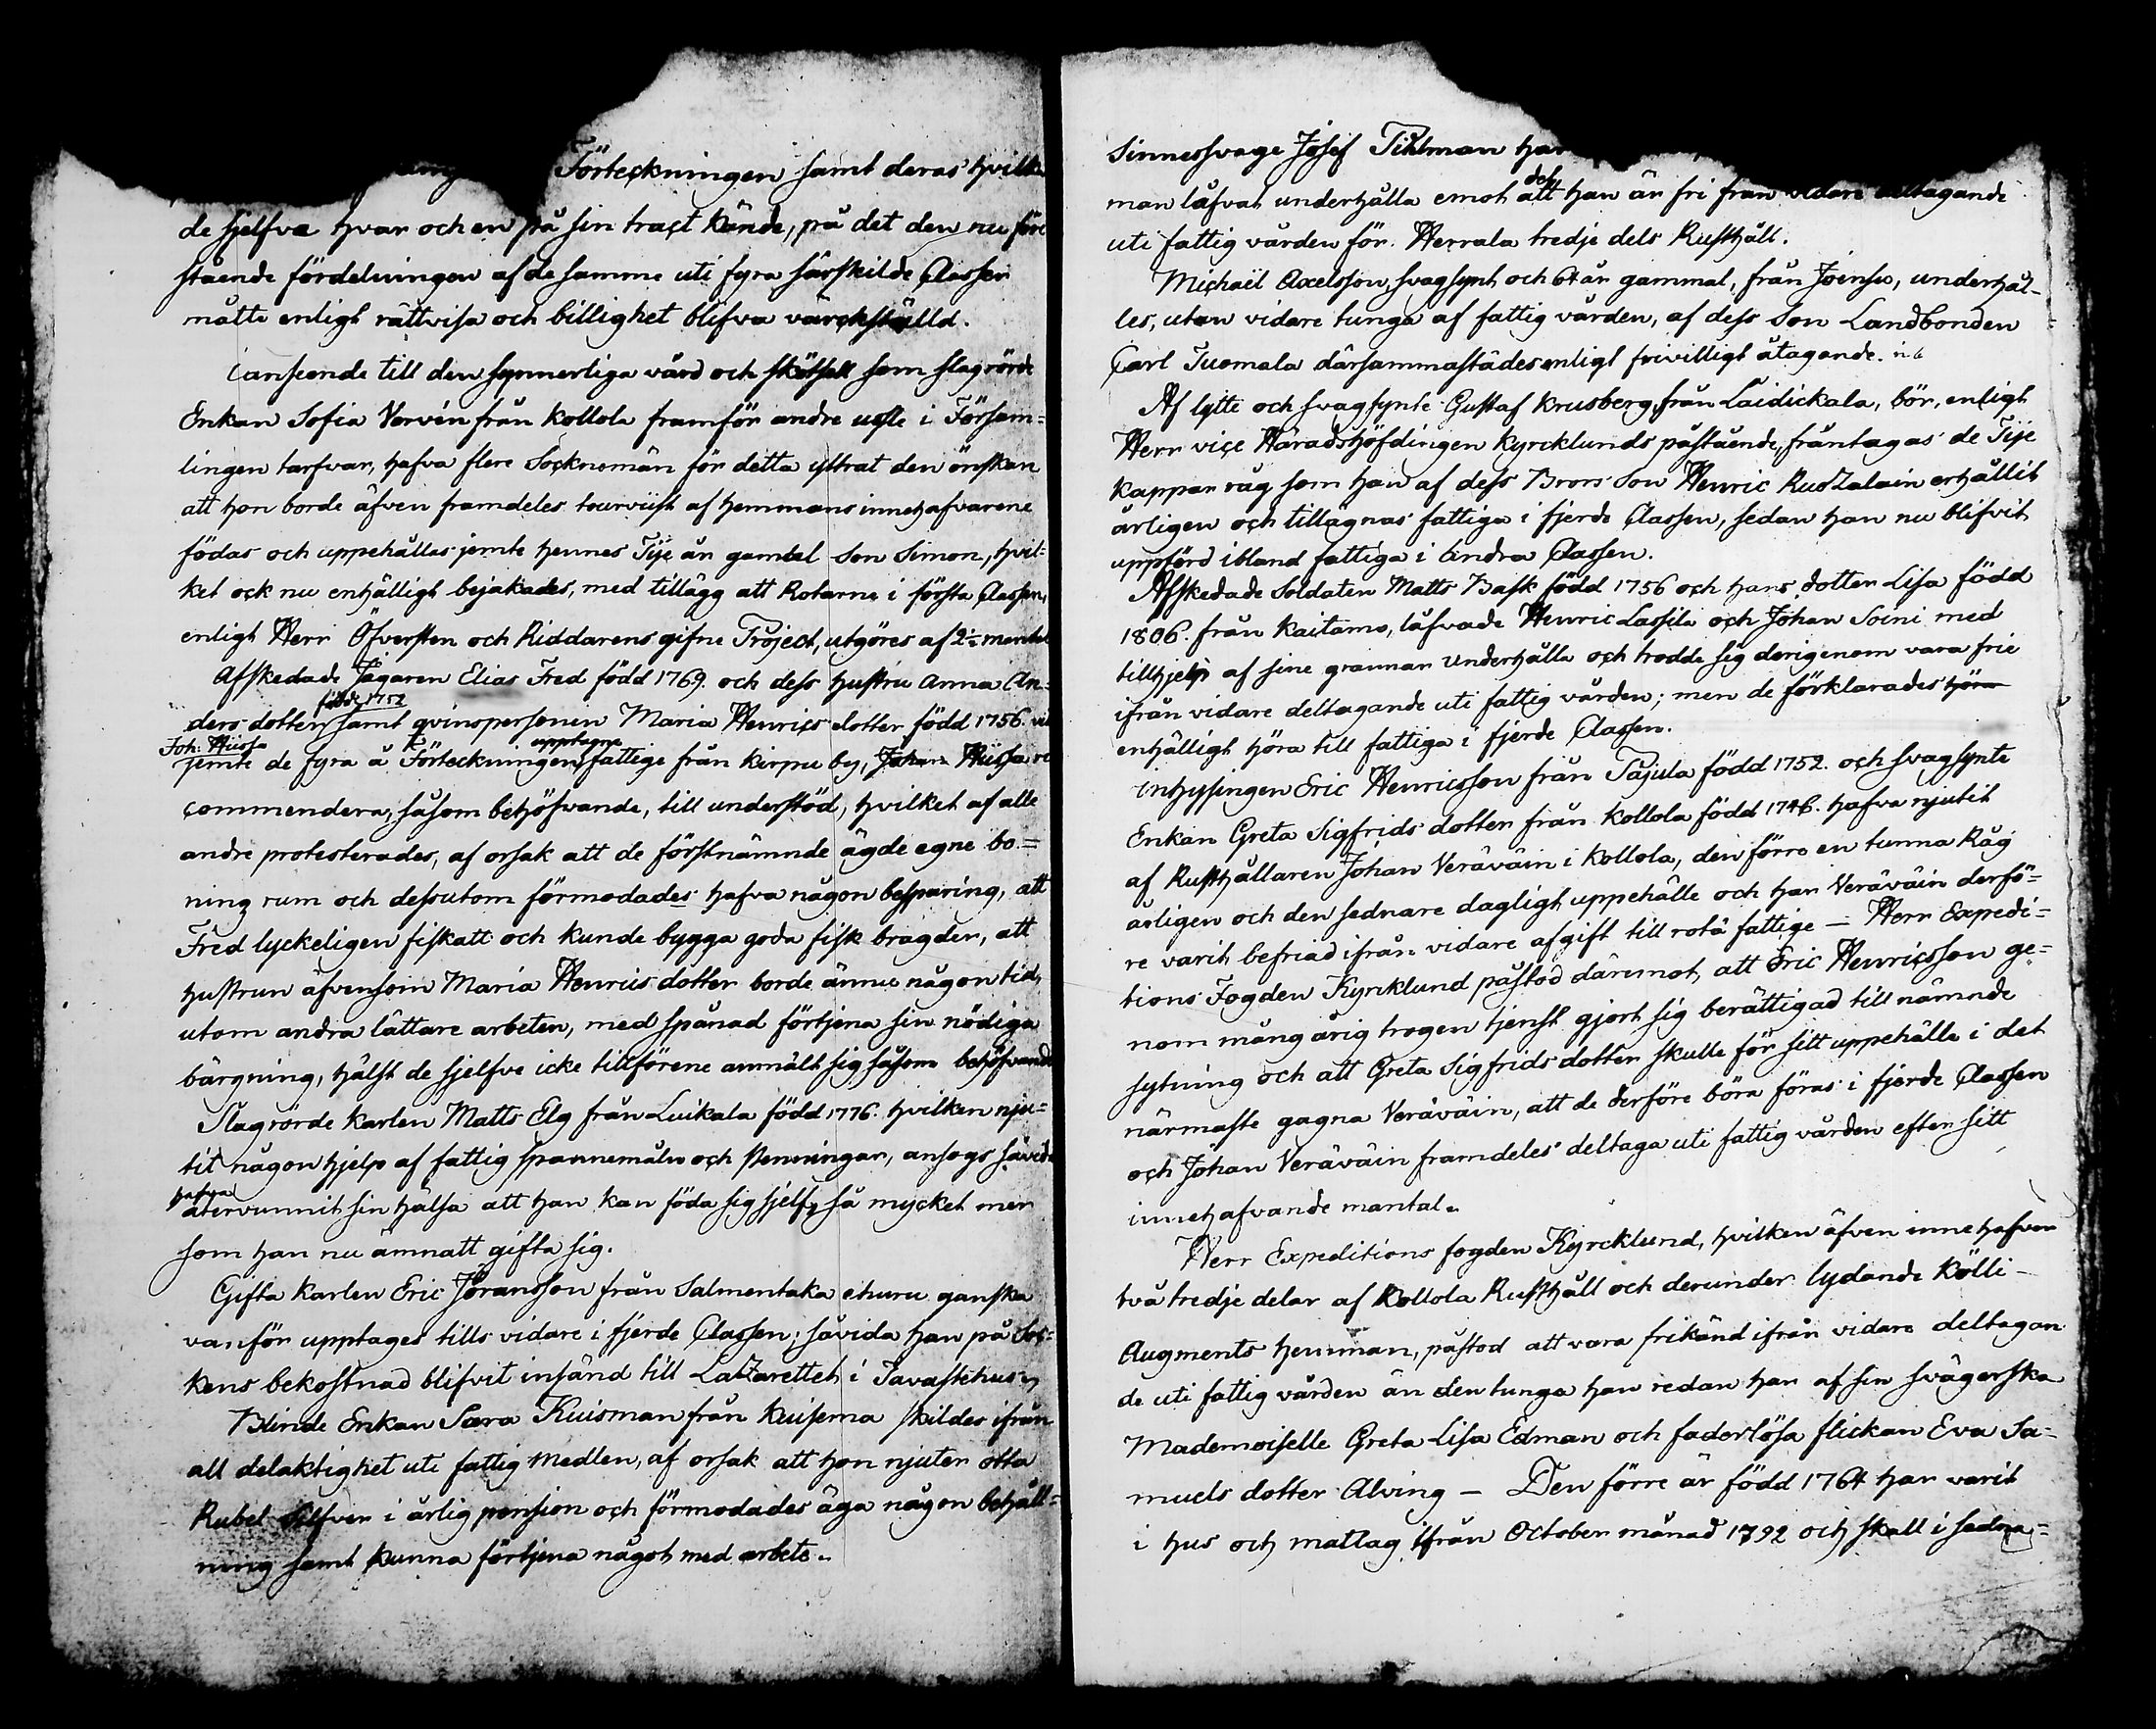 Förteckningen samt deras hvilka
de sjelfva hvar och en på sin tract kände, på det den nu före
stående fördelningen af de samme uti fyra särskilde Classer
måtte enligt rättvisa och billighet blifva värckstälId.
i anseende till den synnerliga vård och skötsell som slagrörde
Enkan Sofia Vervén från Kollola framför andre usle i Försam=
lingen tarfvar, hafva flere Socknemän för detta yttrat den önskan
att hon borde äfven framdeles tourviist af hemmans innehafvarene
födas och uppehållas jemte hennes Tije år gambel Son Simon, hvil=
ket ock nu enhälligt bejakades, med tillägg att Rotarne i första Classen,
enligt Herr Öfversten och Riddarens gifne Project, utgöres af 2½ mantal
Afskedade Jägaren Elias Fred född 1769. och dess hustru Anna An=
född 1752
ders dotter samt qvinspersonen Maria Henrics dotter född 1756. vil
Joh: Hiissa upptagne
jemte de fyra å Förteckningen fattige från Kirpu by, Johan Hiissa re
commendera, såsom behöfvande, till understöd, hvilket af alle
andre protesterades, af orsak att de förstnämnde ägde egne bo=
ning rum och dessutom förmodades hafva någon besparing, att
Fred lyckeligen fiskatt och kunde bygga goda fisk bragder, att
hustrun äfvensom Maria Henrics dotter borde ännu någon tid,
utom andra lättare arbeten, med spånad förtjena sin nödiga
bärgning, hälst de sjelfve icke tillförene anmält sig såsom behöfvande
Slagrörde Karlen Matts Elg från Luikala född 1776. hvilken nju=
tit någon hjelp af fattig spannemåln och Penningar, ansogs såvida
hafva
återvunnit sin hälsa att han kan föda sig sjelf, så mycket mer
som han nu ämnatt gifta sig.
Gifta Karlen Eric Jöransson från Salmentaka ehuru ganska
vanför upptages tills vidare i fjerde Classen, såvida han på Soc=
kens bekostnad blifvit insänd till Lazarettet i Tavastehus.
Blinde Enkan Sara Kuisman från Kuisema skildes ifrån
all delaktighet uti fattig medlen, af orsak att hon njuter otta
Rubel Silfver i årlig pension och förmodades äga någon behåll=
ning samt kunna förtjena något med arbete.
Sinnessvage Josef Tihlman har
det
man låfvat underhålla emot att han är fri från vidare deltagande
uti fattig vården för Herrala tredje dels Rusthåll.
Michaël Axelsson, svagsynt och 64 år gammal, från Joensu, underhål-
les, utan vidare tunga af fattig vården, af dess Son Landbonden
Carl Tuomala därsammastädes enligt frivilligt åtagande.
Af lytte och svagsynte Gustaf Krusberg från Laidickala, bör, enligt
Herr vice Häradshöfdingen Kyrcklunds påstående, fråntagas de Tije
kappar råg som han af dess Brors Son Henric Ruozalain erhållit
årligen och tillägnas fattiga i fjerde Classen, sedan han nu blifvit
uppförd ibland fattiga i andra Classen.
Afskedade Soldaten Matts Bask född 1756 och hans dotter Lisa född
1806. från Kaitamo, låfvade Henric Lassila och Johan Soini med
tillhjelp af sine grannar underhålla och trodde sig derigenom vara frie
ifrån vidare deltagande uti fattig vården; men de förklarades höra
enhälligt höra till fattiga i fjerde Classen.
inhysingen Eric Henricsson från Pajula född 1752. och svagsynte
Enkan Greta Sigfrids dotter från Kollola född 1746. hafva njutit
af Rusthållaren Johan Veräväin i Kollola, den förre en tunna Råg
årligen och den sednare dagligt uppehälle och har Veräväin derfö=
re varit befriad ifrån vidare afgift till rotå fattige — Herr Expedi=
tions Fogden Kyrcklund påstod däremot, att Eric Henricsson ge=
nom mång årig trogen tjenst gjort sig berättigad till nämnde
sytning och att Greta Sigfrids dotter skulle för sitt uppehälle i det
närmaste gagna Veräväin, att de derföre böra föras i fjerde Classen
och Johan Veräväin framdeles deltaga uti fattig vården efter sitt
innehafvande mantal.
Herr Expeditions fogden Kyrcklund, hvilken äfven innehafver
två tredje delar af Kollola Rusthåll och derunder lydande Kölli-
Augments hemman, påstod att vara frikänd ifrån vidare deltagan
de uti fattig vården än den tunga han redan har af sin svägerska
Mademoiselle Greta Lisa Edman och faderlösa flickan Eva Sa=
muels dotter Alving — Den förre är född 1764 har varit
i hus och mattag ifrån October månad 1792 och skall i sedna=